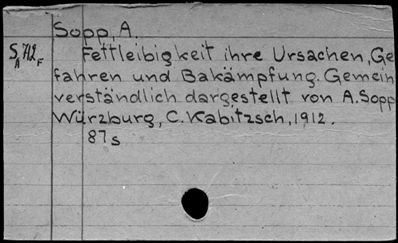 Sopp, A.
S A 712 F
Fettleibigkeit ihre Ursachen, Ge
fahren und Bakämpfung. Gemein
verständlich dargestellt von A. Sopp
Würzburg, C. Kabitzsch, 1912.
87s